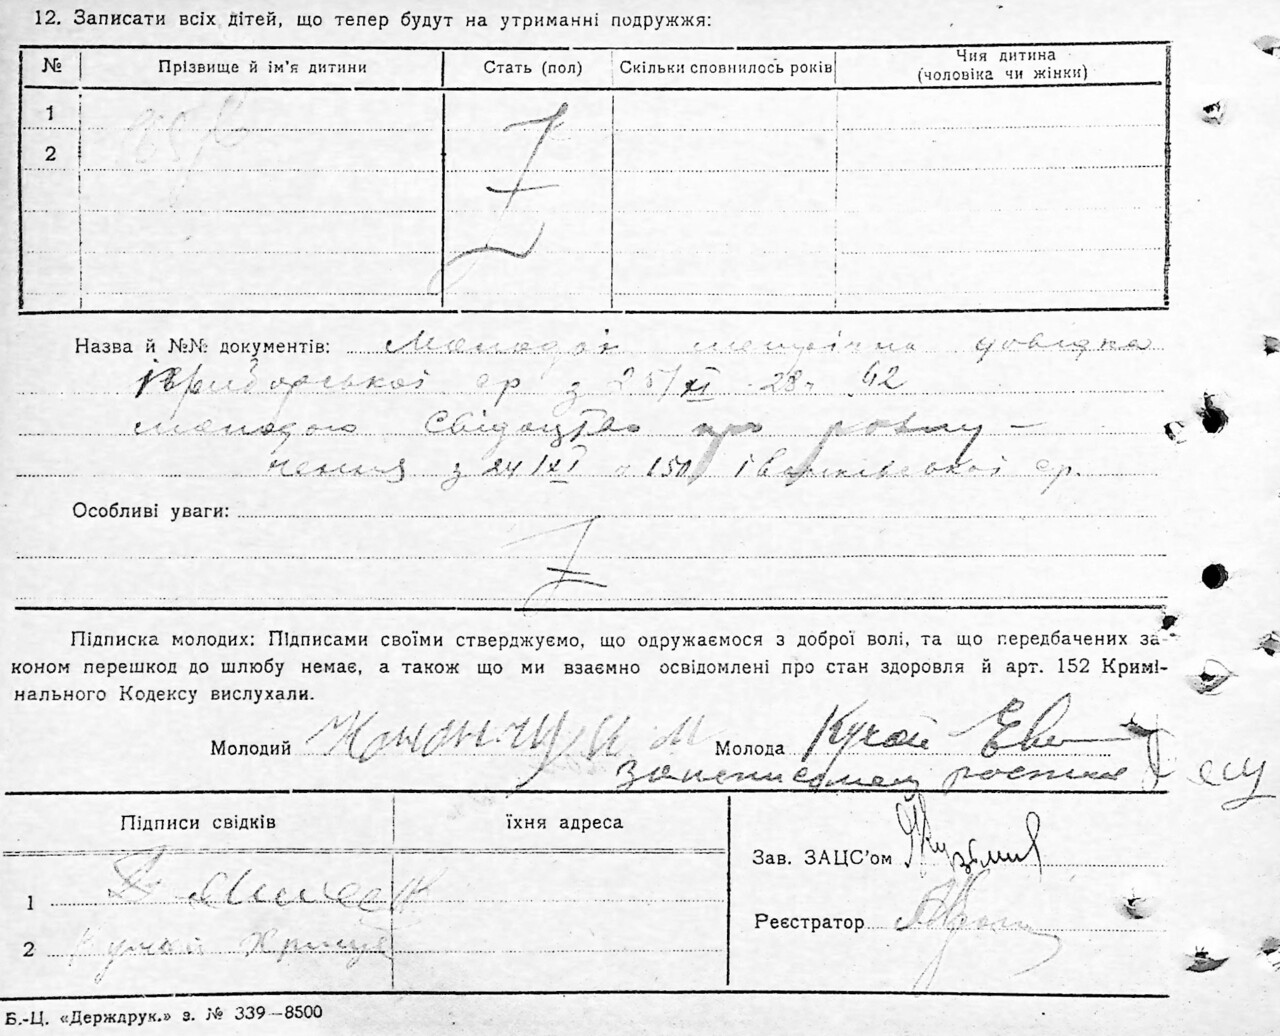 12. Записати всіх дітей, що тепер будут на утриманні подружжя:
№ Прізвище й ім'я дитини Стать (пол) Скільки сповнилось років Чия дитина (чоловіка чи жінки)
1
2
Назва й №№ документів: Молодой метрічна довідка
ср з 25/XI 28 р 62
молодою свідоцтво про розлу-
чення з 24/XI № 150 Іванківської ср.
Особливі уваги:
Підписка молодих: Підписами своїми стверджуємо, що одружаємося з доброї волі, та що передбачених за
коном перешкод до шлюбу немає, а також що ми взаємно освідомлені про стан здоровля й арт. 152 Кримі-
нального Кодексу вислухали.
Молодий Молода Кухай Єв
Підписи свідків їхня адреса
Зав. ЗАЦС'ом
1
Реєстратор
2
Б.-Ц. «Держдрук.» з. № 339—8500